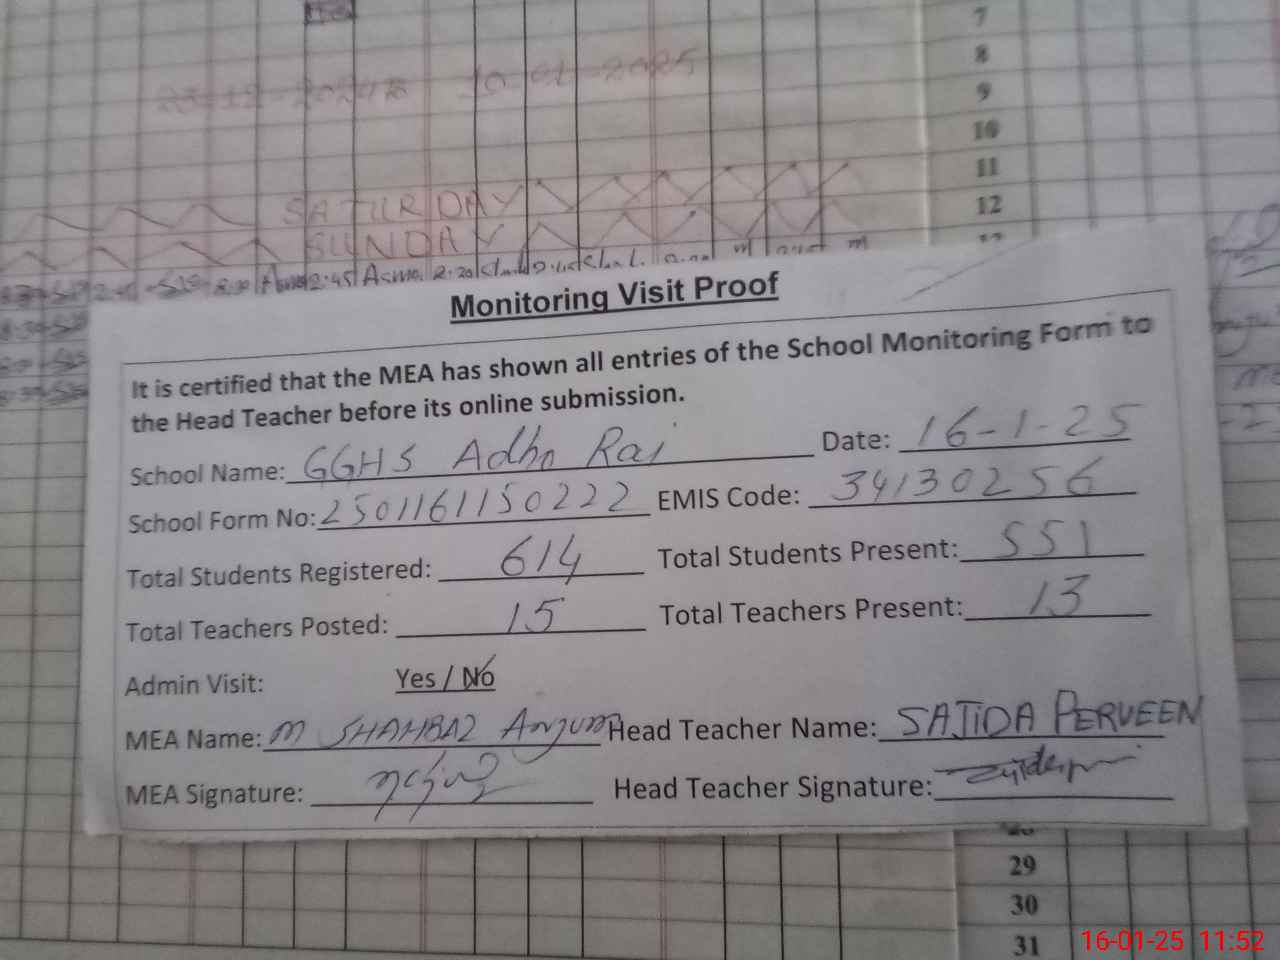 7
8
9
10
11
12
SATURDAY
SUNDAY
Monitoring Visit Proof
It is certified that the MEA has shown all entries of the School Monitoring Form to
the Head Teacher before its online submission.
School Name: GGHS Adho Rai Date: 16-1-25
School Form No: 2501161150222 EMIS Code: 34130256
Total Students Registered: 614 Total Students Present: 551
Total Teachers Posted: 15 Total Teachers Present: 13
Admin Visit: Yes / No
MEA Name: M SHAHBAZ Anjum Head Teacher Name: SAJIDA PERVEEN
MEA Signature: Head Teacher Signature:
29
30
31
16-01-25 11:52